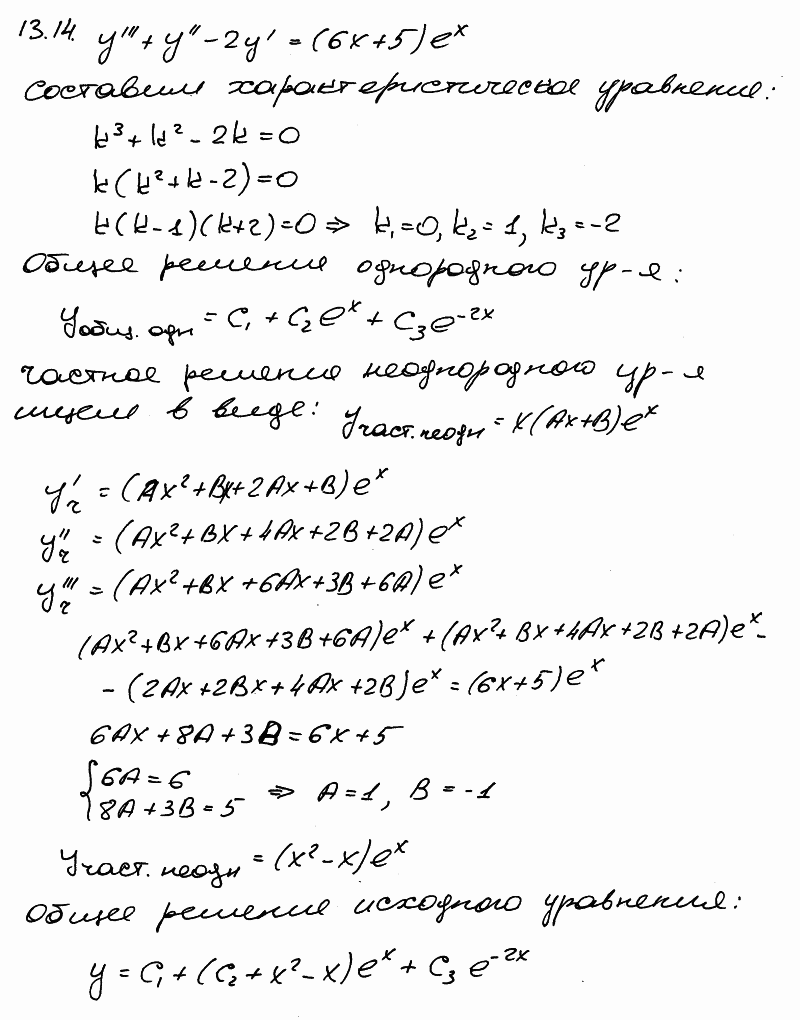 13.14. y''' + y'' - 2y' = (6x+5)e^x
Составим характеристическое уравнение:
k³ + k² - 2k = 0
k(k² + k - 2) = 0
k(k-1)(k+2) = 0 ⇒ k₁=0, k₂=1, k₃=-2
Общее решение однородного ур-я:
y общ. одн = C₁ + C₂e^x + C₃e^-2x
частное решение неоднородного ур-я
ищем в виде: y част. неодн = x(Ax+B)e^x
y'ч = (Ax² + Bx + 2Ax + B)e^x
y''ч = (Ax² + Bx + 4Ax + 2B + 2A)e^x
y'''ч = (Ax² + Bx + 6Ax + 3B + 6A)e^x
(Ax² + Bx + 6Ax + 3B + 6A)e^x + (Ax² + Bx + 4Ax + 2B + 2A)e^x -
- (2Ax + 2Bx + 4Ax + 2B)e^x = (6x+5)e^x
6Ax + 8A + 3B = 6x + 5
{ 6A = 6
8A + 3B = 5 ⇒ A = 1, B = -1
y част. неодн = (x² - x)e^x
Общее решение исходного уравнения:
y = C₁ + (C₂ + x² - x)e^x + C₃e^-2x